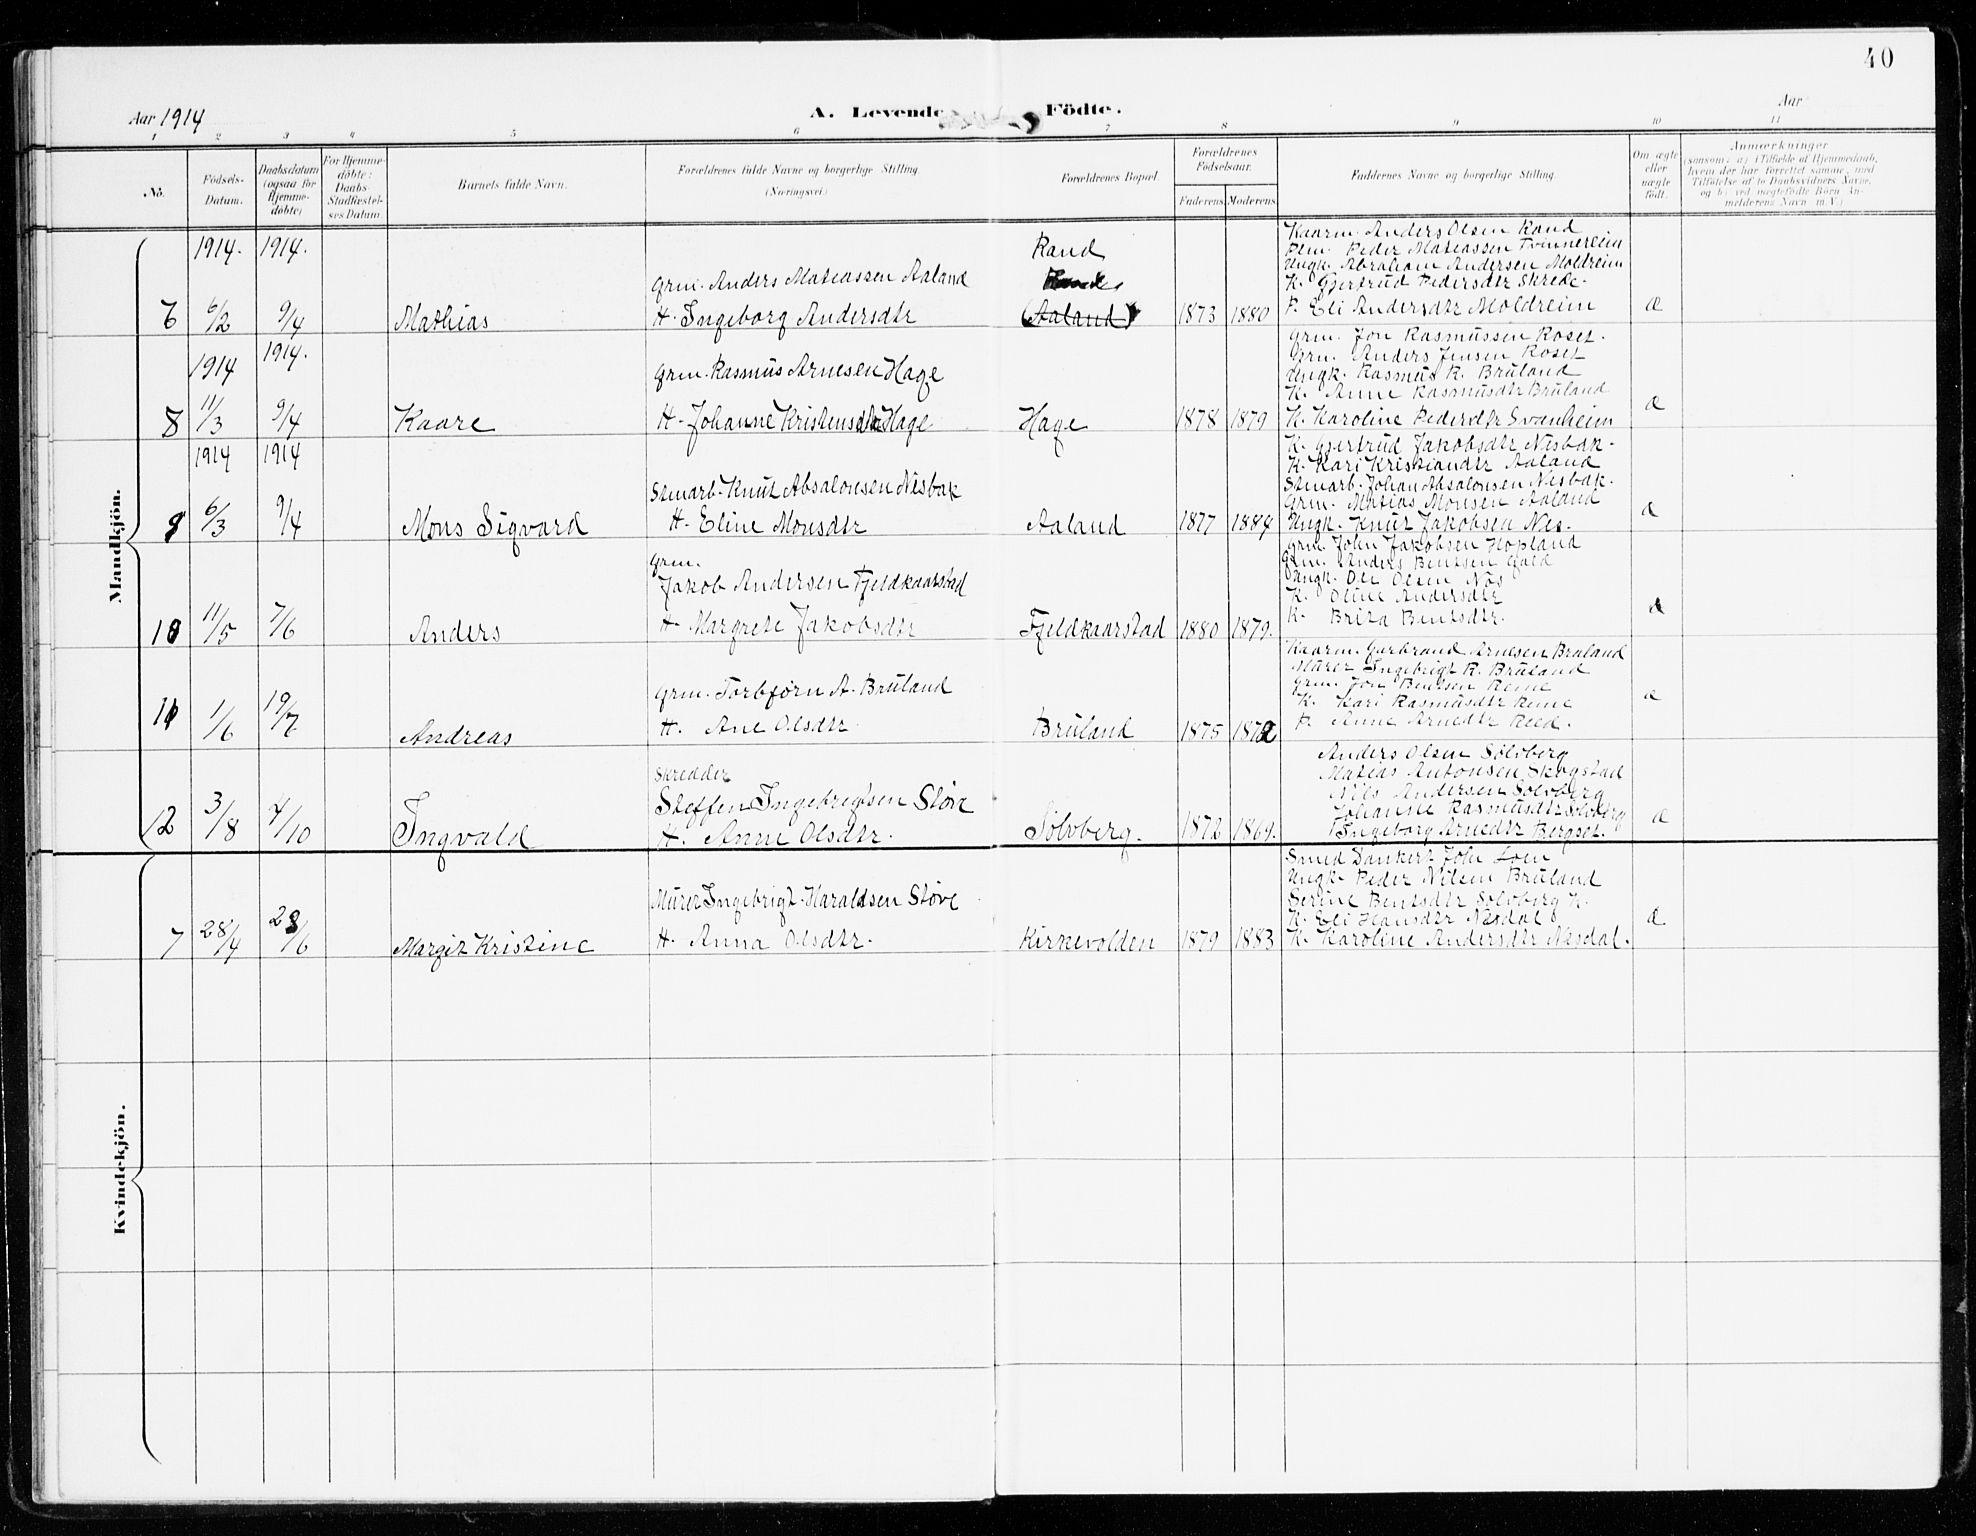 40
Aar 1914
A. Levende Födte.
Aar
1 2 3 4 5 6 7 8 9 10 11
No.
Födsels-Datum.
Daabsdatum (ogsaa for Hjemmedöbte)
For Hjemmedöbte: Daabs-Stadfæstelses Datum.
Barnets fulde Navn.
Forældrenes fulde Navne og borgerlige Stilling (Næringsvei.)
Forældrenes Bopæl.
Forældrenes Födselsaar.
Faderens. Moderens.
Faddernes Navne og borgerlige Stilling.
Om ægte eller uægte födt.
Anmærkninger
(saasom: a) i Tilfælde af Hjemmedaab, hvem der har forrettet samme, med Tilföielse af to Daabsvidners Navne, og b) ved uægtefödte Börn Anmelderens Navn m.V.)
Mandkjön.
1914. 1914.
6 6/2 9/4 Mathias
Grm. Anders Mateassen Aaland
H. Ingeborg Andersdtr
Rand
(Aaland)
1873 1880
Kaarm. Anders Olsen Rand
Plm. Peder Mateassen Tvinnereim
Ungk. Abraham Andersen Moldreim
K. Gjertrud Pedersdtr Skrede.
P. Eli Andersdtr Moldreim
æ
1914 1914.
8 11/3 9/4 Kaare
Grm. Rasmus Arnesen Hage
H. Johanne Kristensdtr Hage
Hage
1878 1879
Grm. Jon Rasmussen Roset.
Grm. Anders Jensen Roset
Ungk. Rasmus R. Bruland
K. Anne Rasmusdtr Bruland
K. Karoline Pedersdtr Svanheim
æ
1914 1914
6/3 9/4 Mons Sigvard
Stuarb. Knut Absalonsen Nesbak
H. Eline Monsdtr
Aaland
1877 1884
K. Gjertrud Jakobsdtr Nesbak.
K. Kari Kristiandtr Aaland
Stuarb. Johan Absalonsen Nesbak.
Grm. Matias Monsen Aaland
Ungk. Knut Jakobsen Nes.
æ
10 11/5 7/6 Anders
Grm.
Jakob Andersen Fjeldkaarstad
H Margrete Jakobsdtr
Fjeldkaarstad
1880 1879.
Grm. John Jakobsen Hopland
Grm. Anders Bentsen
Ungk. Ole Olsen Nos
K. Oline Andersdtr
K. Brita Bentsdtr.
æ
11 1/6 19/7 Andreas
Grm. Torbjørn A. Bruland
H. Ane Olsdtr
Bruland
1875 1872
Kaarm. Garbrand Arnesen Bruland
Murer Ingebrigt R. Bruland
Grm. Jon Bentsen Reme
K. Kari Rasmusdtr Reme
P. Anne Arnedtr Reed.
æ
12 3/8 4/10 Ingvald
Skredder
Steffen Ingebregtsen Støve
H. Anne Olsdtr.
Solvberg.
1872 1869.
Anders Olsen Solvberg
Matias Antonsen Skogstad
Nils Andersen Solvberg
Johanne Rasmusdtr Solvberg
Ingeborg Arnedtr Bergset.
æ
Kvindekjön.
7 28/4 28/6 Margit Kristine
Murer Ingebrigt Haraldsen Støve
H. Anna Olsdtr.
Kirkevolden
1879 1883
Smed Dankert Joh Loen
Ungk. Peder Nilsen Bruland
Serine Bentsdtr Solvberg K.
K. Eli Hansdtr Nesdal
K. Karoline Andersdtr Nesdal.
æ